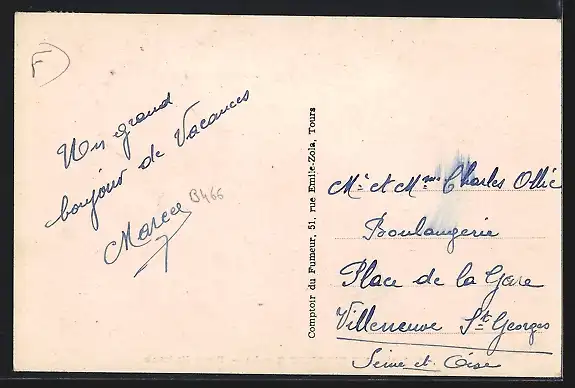 F
Un grand
bonjour de Vacances
Marcel
B466
Comptoir du Fumeur, 51, rue Emile-Zola, Tours
Mr et Mme Charles Ollié
Boulangerie
Place de la Gare
Villeneuve St Georges
Seine et Oise